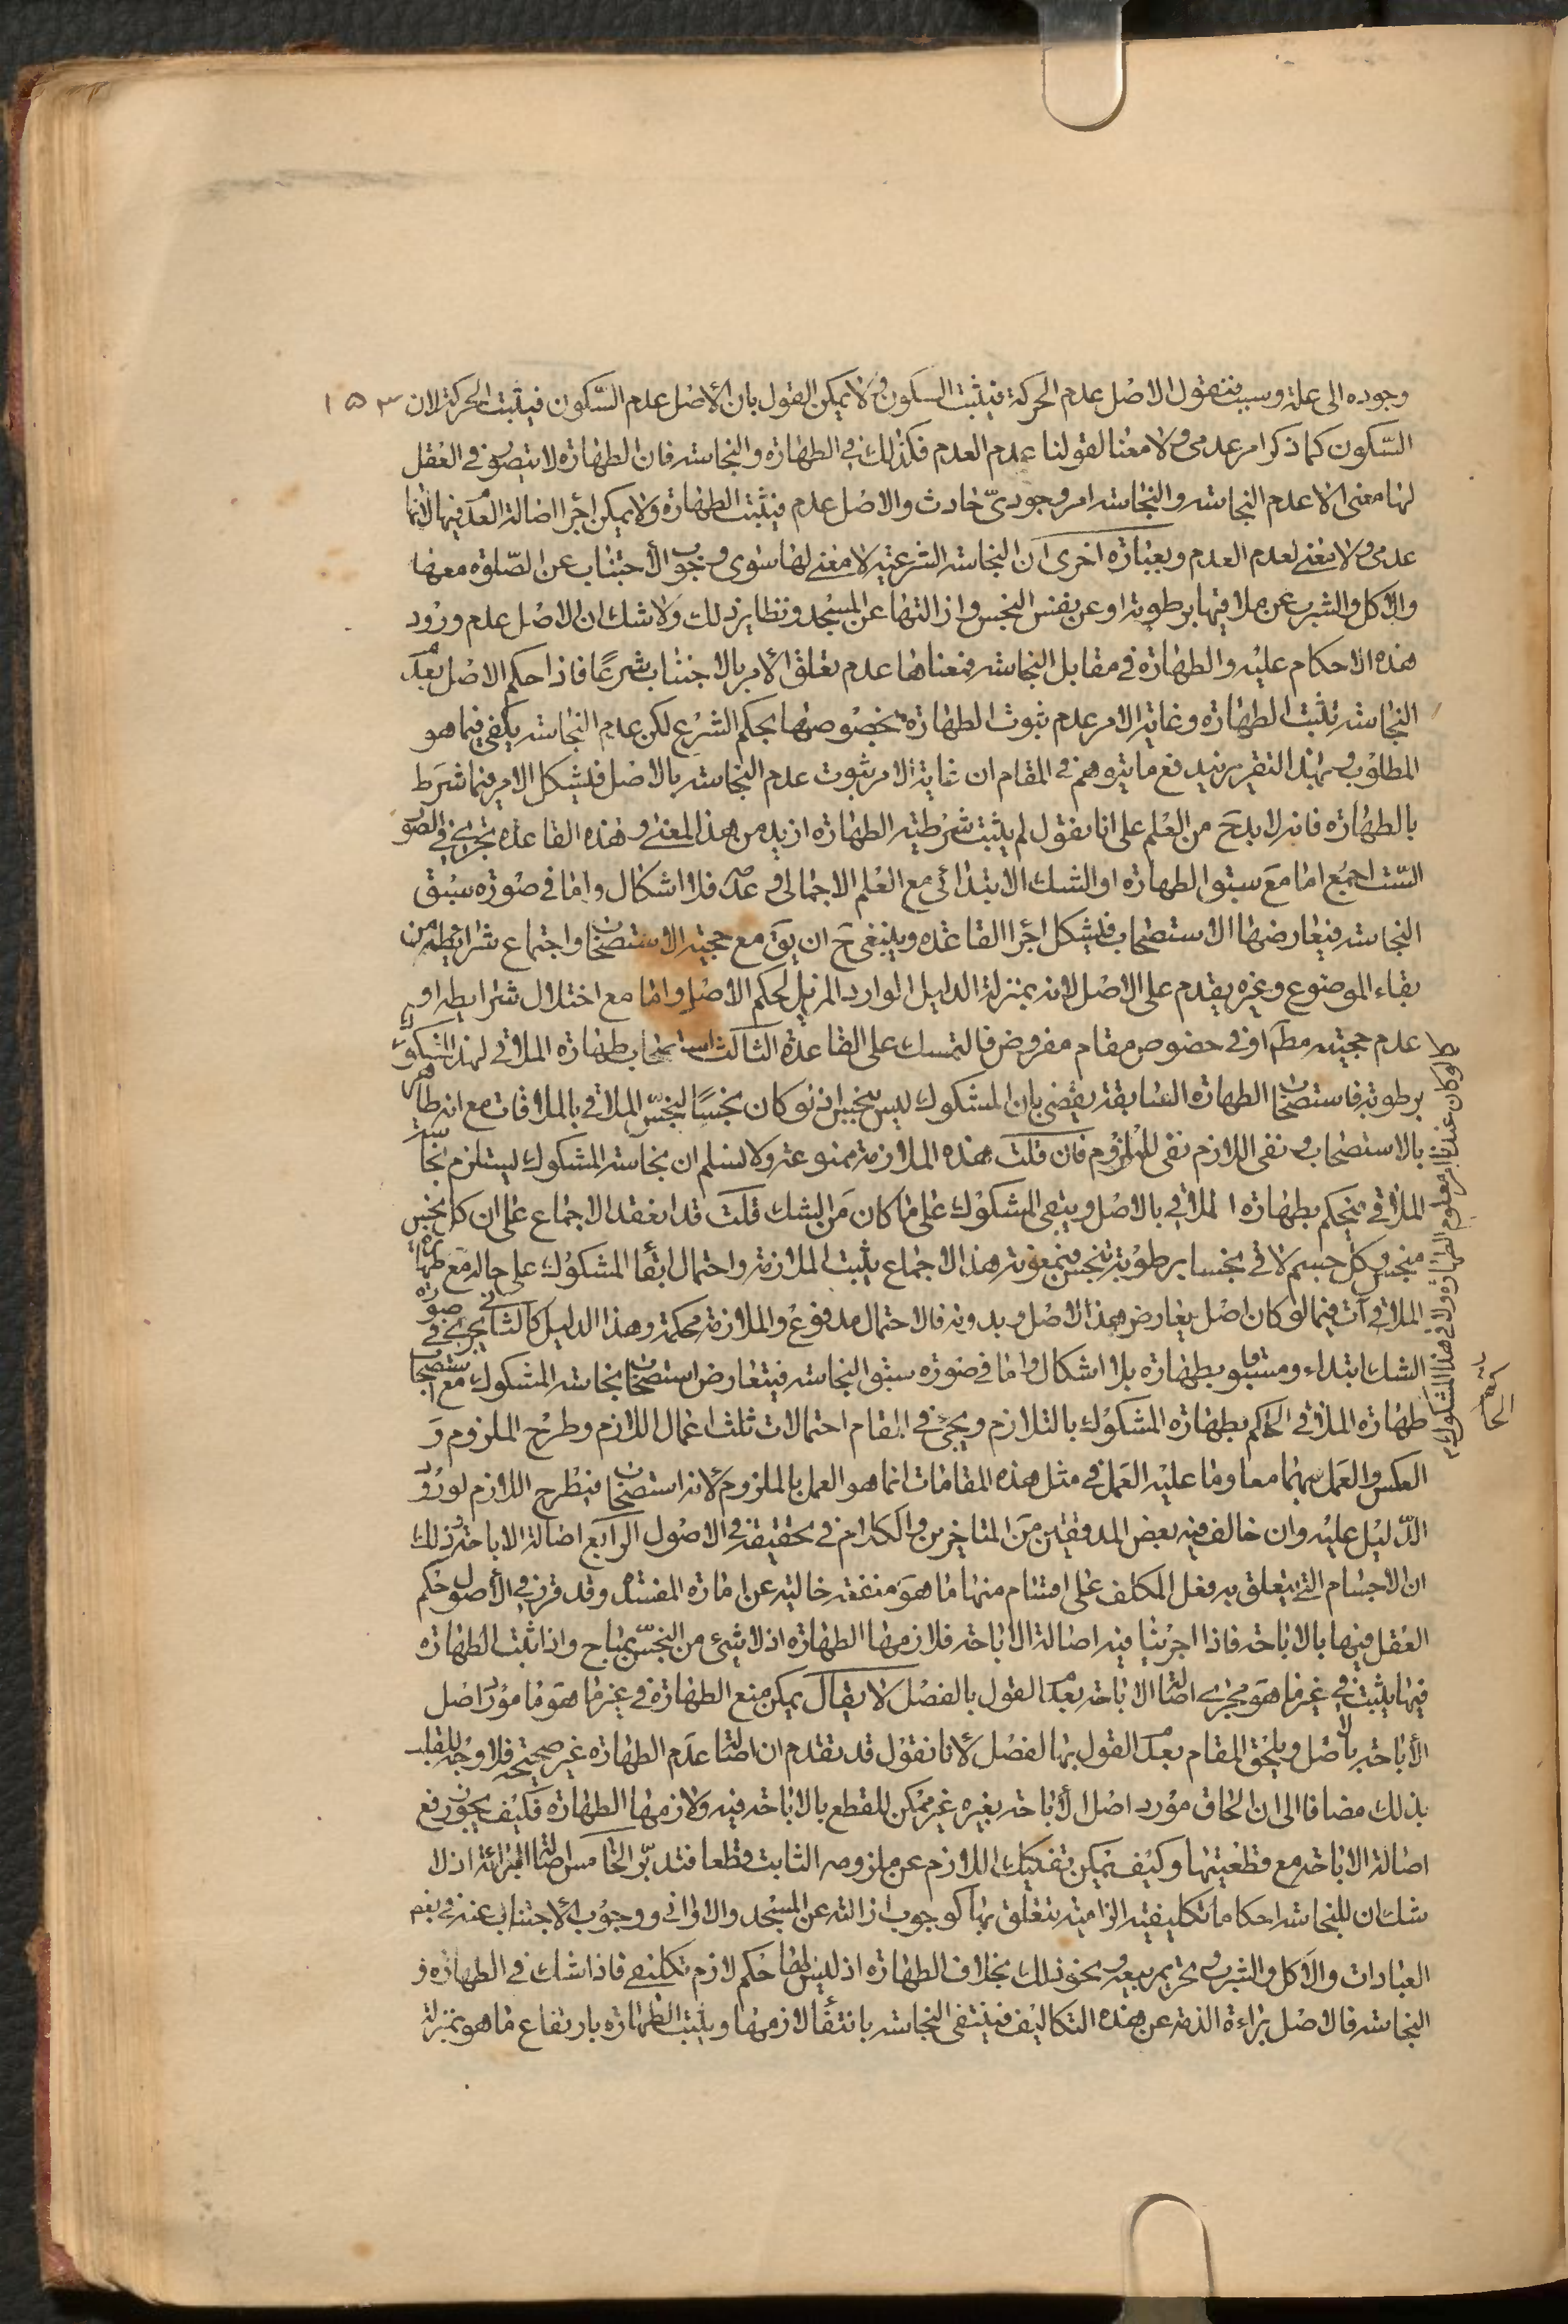 وجوده الى علة وسبب فنقول الاصل عدم الحركة فيثبت السكون ولا يمكن القول بان الأصل عدم السّكون فيثبت الحركة لان ١٥٣
السّكون كما ذكر امر عدمى ولا معنا لقولنا عدم العدم فكذلك فى الطهارة والنجاسة فان الطهارة لا يتصور فى العقل
لها معنى الا عدم النجاسة والنجاسة امر وجودىّ حادث والاصل عدم فيثبت الطهارة ولا يمكن اجرا اصالة العدم فيها لانها
عدمى ولا معنى لعدم العدم وبعبارة اخرى ان النجاسة الشرعية لا معنى لها سوى وجوب الأجتناب عن الصّلوة معها
والاكل والشرب عن ملاقيها برطوبة او عن نفس النجس وازالتها عن المسجد ونظاير ذلك ولا شك ان الاصل عدم ورود
هذه الاحكام عليه والطهارة فى مقابل النجاسة فمعناها عدم تعلق الأمر بالاجتناب شرعًا فاذا حكم الاصل بعدم
النجاسة تثبت الطهارة وغاية الامر عدم ثبوت الطهارة بخصوصها بحكم الشرع لكن عدم النجاسة يكفى فيما هو
المطلوب وبهذا التقرير يندفع ما يتوهم فى المقام ان غاية الامر ثبوت عدم النجاسة بالاصل فيشكل الامر فيما شرط
بالطهارة فانه لا بد ح من العلم على انا نقول لم يثبت شرطية الطهارة ازيد من هذا المعنى وهذه القاعدة تجرى فى الصور
السّت اجمع اما مع سبق الطهارة او الشك الابتدائى مع العلم الاجمالى وعدمه فلا اشكال واما فى صورة سبق
النجاسة فيعارضها الاستصحاب فيشكل اجرا القاعدة وينبغى ح ان يق مع حجية الاستصحاب واجتماع شرائطه من
بقاء الموضوع وغيره يقدم على الاصل لانه بمنزلة الدليل الوارد المزيل لحكم الاصل واما مع اختلال شرايطه او
عدم حجيته مطم او فى خصوص مقام مفروض فالتمسك على القاعدة الثالث استصحاب طهارة الملاقى لهذا المشكوك
برطوبة فاستصحاب الطهارة السابقة يقضى بان المشكوك ليس بنجس اذ لو كان نجسًا لنجّس الملاقى بالملاقات مع انه طاهر
بالاستصحاب ونفى اللازم نفى للملزوم فان قلت هذه الملازمة ممنوعة ولا نسلم ان نجاسة المشكوك ليستلزم نجاسة
الملاقى فيحكم بطهارة الملاقى بالاصل ويبقى المشكوك على ما كان من الشك قلت قد انعقد الاجماع على ان كل نجس
منجس وكل جسم لاقى نجسا برطوبة تنجس فبمعونة هذا الاجماع يثبت الملازمة واحتمال ابقا المشكوك على حاله مع طهارة
الملاقى آت فيما لو كان اصل يعارض هذا الاصل وبدونه فالاحتمال مدفوع والملازمة محكمة وهذا الدليل كالثانى يجرى فى صورة
الشك ابتداء ومسبوق بطهارة بلا اشكال واما فى صورة سبق النجاسة فيتعارض استصحاب نجاسة المشكوك مع استصحاب
طهارة الملاقى الحاكم بطهارة المشكوك بالتلازم ويجئ فى المقام احتمالات ثلث اعمال اللازم وطرح الملزوم و
العكس والعمل بهما معا وما عليه العمل فى مثل هذه المقامات انما هو العمل بالملزوم لانه استصحاب فيطرح اللازم لورود
الدّليل عليه وان خالف فيه بعض المدققين من المتاخرين والكلام فى تحقيقه فى الاصول الرابع اصالة الاباحة وذلك
ان الاجسام التى يتعلق به فعل المكلف على اقسام منها ما هو منفعة خالية عن امارة المفسدة وقد قرر فى الأصول حكم
العقل فيها بالاباحة فاذا اجرينا فيه اصالة الاباحة فلازمها الطهارة اذ لا شىء من النجس بمباح واذا ثبت الطهارة
فيها يثبت فى غير ما هو مجرى اصالة الاباحة بعدم القول بالفصل لا يقال يمكن منع الطهارة فى غير ما هو مورد اصل
الأباحة بالاصل ويلحق المقام بعدم القول بالفصل لأنا نقول قد تقدم ان اصالة عدم الطهارة غير صحيحة فلا وجه للقلب
بذلك مضافا الى ان الحاق مورد اصل الأباحة بغيره غير ممكن للقطع بالاباحة فيه ولازمها الطهارة فكيف يجوز رفع
اصالة الاباحة مع قطعيتها وكيف يمكن تفكيك اللازم عن ملزومه الثابت قطعا فتدبّر الخامس اصالة البرائة اذ لا
شك ان للنجاسة احكاما تكليفية الزامية تتعلق بها كوجوب ازالته عن المسجد والاوانى ووجوب الأجتناب عنه فى بعض
العبادات والاكل والشرب وتحريم بيعه ونحو ذلك بخلاف الطهارة اذ ليس لها حكم لازم تكليفى فاذا شك فى الطهارة و
النجاسة فالاصل براءة الذمة عن هذه التكاليف فينتفى النجاسة بانتفاء لازمها ويثبت الطهارة بارتفاع ما هو بمنزلة